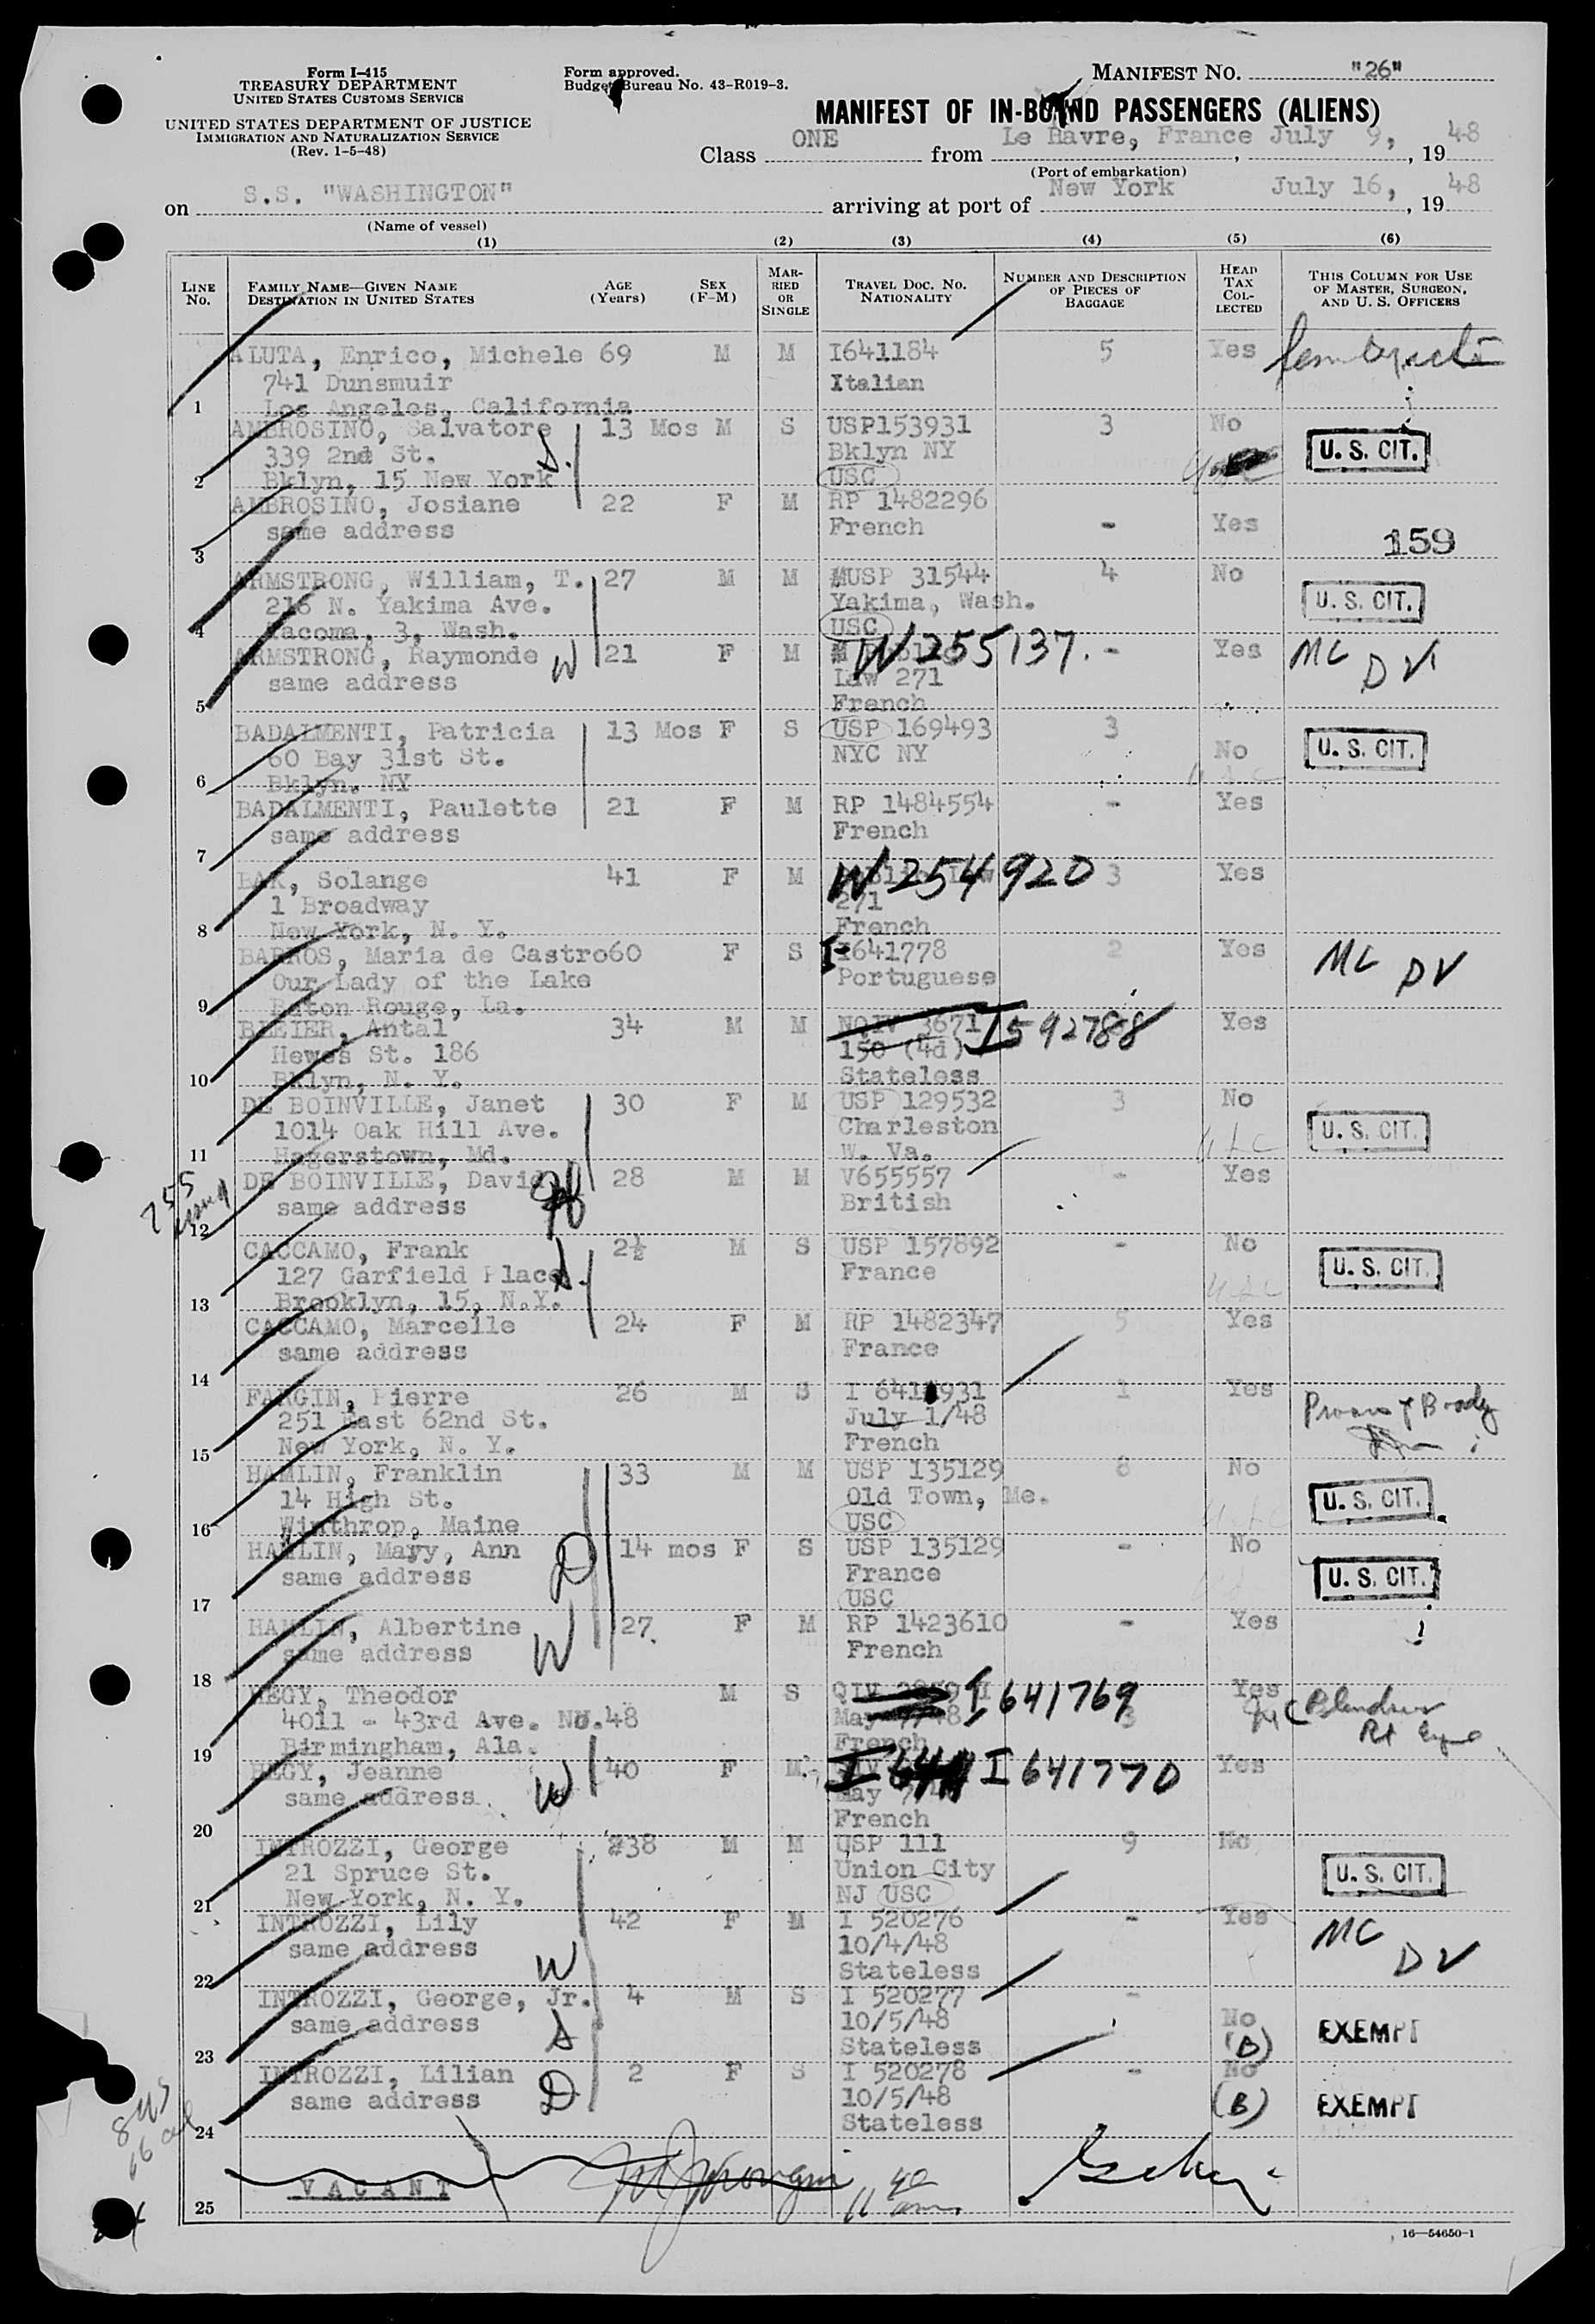 Form I-415
TREASURY DEPARTMENT
UNITED STATES CUSTOMS SERVICE
UNITED STATES DEPARTMENT OF JUSTICE
IMMIGRATION AND NATURALIZATION SERVICE
(Rev. 1-5-48)
Form approved.
Budget Bureau No. 43-R019-3.
MANIFEST NO. "26"
MANIFEST OF IN-BOUND PASSENGERS (ALIENS)
Class ONE from Le Havre, France July 9, , 1948
(Port of embarkation)
on S.S. "WASHINGTON" arriving at port of New York July 16, , 1948
(Name of vessel)
(1) (2) (3) (4) (5) (6)
LINE NO. FAMILY NAME—GIVEN NAME DESTINATION IN UNITED STATES AGE (Years) SEX (F-M) MARRIED OR SINGLE TRAVEL DOC. NO. NATIONALITY NUMBER AND DESCRIPTION OF PIECES OF BAGGAGE HEAD TAX COLLECTED THIS COLUMN FOR USE OF MASTER, SURGEON, AND U. S. OFFICERS
ALUTA, Enrico, Michele 69 M M I641184 5 Yes
741 Dunsmuir Italian
1 Los Angeles, California
AMBROSINO, Salvatore 13 Mos M S USP153931 3 No
339 2nd St. S. Bklyn NY U. S. CIT.
2 Bklyn, 15 New York USC
AMBROSINO, Josiane 22 F M RP 1482296
same address French - Yes
3 159
ARMSTRONG, William, T. 27 M M USP 31544 4 No
216 N. Yakima Ave. Yakima, Wash. U. S. CIT.
4 Tacoma, 3, Wash. USC
ARMSTRONG, Raymonde W 21 F M W 255137. - Yes MC
same address Law 271 DV
5 French
BADALMENTI, Patricia 13 Mos F S USP 169493 3
60 Bay 31st St. NYC NY No U. S. CIT.
6 Bklyn. NY
BADALMENTI, Paulette 21 F M RP 1484554 - Yes
same address French
7
BAK, Solange 41 F M W 254920 3 Yes
1 Broadway 271
8 New York, N. Y. French
BARROS, Maria de Castro 60 F S I641778 2 Yes MC
Our Lady of the Lake Portuguese DV
9 Baton Rouge, La.
BLEIER, Antal 34 M M NQIV 3671 I592788 Yes
Hewes St. 186 150 (4d)
10 Bklyn, N. Y. Stateless
DE BOINVILLE, Janet 30 F M USP 129532 3 No
1014 Oak Hill Ave. Charleston U. S. CIT.
11 Hagerstown, Md. W. Va.
DE BOINVILLE, David 28 M M V655557 - Yes
same address British
12
CACCAMO, Frank 2½ M S USP 157892 - No
127 Garfield Place S. France U. S. CIT.
13 Brooklyn, 15, N.Y.
CACCAMO, Marcelle 24 F M RP 1482347 5 Yes
same address France
14
FARGIN, Pierre 26 M S I 641931 1 Yes
251 East 62nd St. July 1/48
15 New York, N. Y. French
HAMLIN, Franklin 33 M M USP 135129 8 No
14 High St. Old Town, Me. U. S. CIT.
16 Winthrop, Maine USC
HAMLIN, Mary, Ann D 14 mos F S USP 135129 - No
same address France U. S. CIT.
17 USC
HAMLIN, Albertine W 27. F M RP 1423610 - Yes
same address French
18
HEGY, Theodor M S I 641769 Yes
4011 - 43rd Ave. No. 48 May 3
19 Birmingham, Ala. French
HEGY, Jeanne W 40 F M I 641770 Yes
same address. May
20 French
INTROZZI, George 38 M M USP 111 9 No
21 Spruce St. Union City U. S. CIT.
21 New York, N. Y. NJ USC
INTROZZI, Lily 42 F M I 520276 - Yes MC
same address W 10/4/48 DV
22 Stateless
INTROZZI, George, Jr. 4 M S I 520277 -
same address S 10/5/48 No EXEMPT
23 Stateless (B)
INTROZZI, Lilian 2 F S I 520278 - No
same address D 10/5/48 (B) EXEMPT
24 Stateless
VACANT 11 40 am.
25
16—54650-1